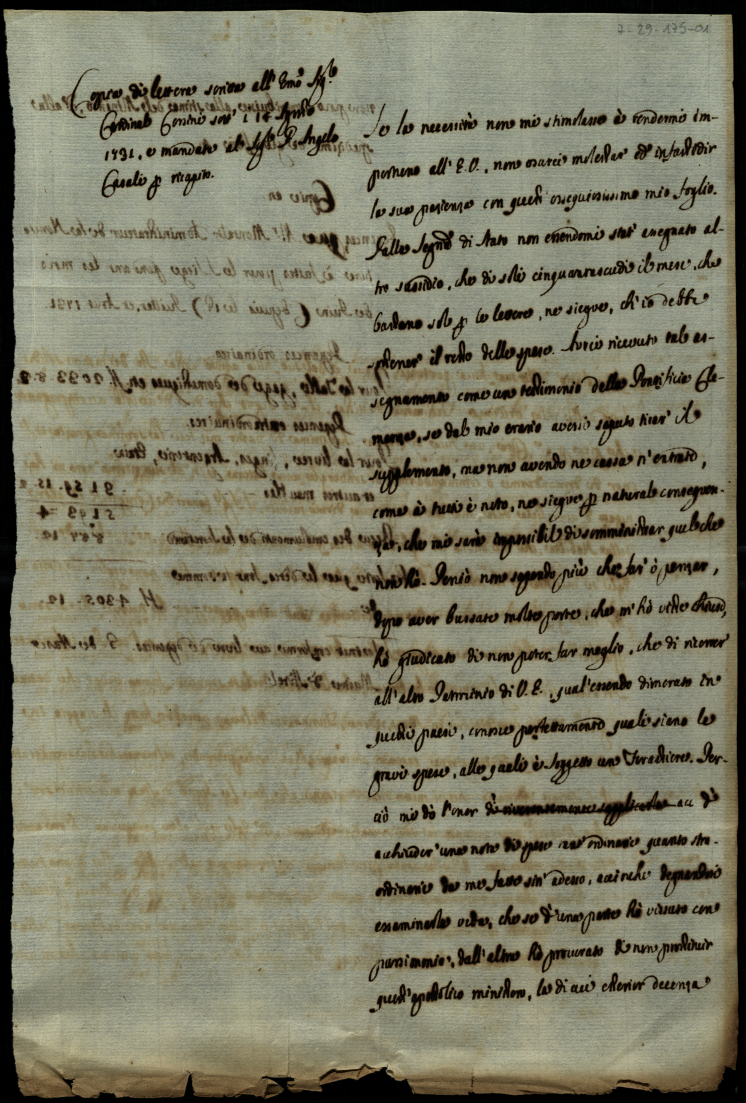 7-29-175-01
Copia di lettera scritta all' Emo Sigr
Cardinal Corsini sotto li 14 Agosto
1731. e mandata al Sigr. D. Angelo
Casali p ricapito.
Se la necessità non mi stimolasse à rendermi im-
portuno all' E.V., non osarei molestar ed infastidir
la sua pazienza con questo ossequiosissimo mio foglio.
Dalla Segria di Stato non essendomi stat' assegnato al-
tro sussidio, che di soli cinquanta scudi il mese, che
bastano solo p le lettere, ne siegue, ch' io debba
sostener il resto delle spese. Avrei ricevuto tale as-
segnamento come un testimonio della Pontificia Cle-
menza, se dal mio erario avessi saputo tirar il
supplemento, ma non avendo ne cassa n' entrate,
come à tutti è noto, ne siegue p naturale conseguen-
za, che mi sarà impossibile di somministrar quel che
non hò. Perciò non sapendo più che far' ò pensar,
dopo aver bussate molte porte, che m' hò viste chiuse,
hò giudicato di non poter far meglio, che di ricorrer
all' alto Patrocinio di V.E., qual' essendo dimorato in
questi paesi, conosce perfettamente quali siano le
gravi spese, alle quali è soggetto un Forastiere. Per-
ciò mi dò l' onor di riverentemente supplicarla di
acchiuder' una nota di spese tant' ordinarie quanto stra-
ordinarie da me fatte sin' adesso, acciochè degnandosi
essaminarla veda, che se d' una parte hò vissuto con
parsimonia, dall' altra hò procurato di non prostituir
quest' apostolico ministero, la di cui esterior decenza